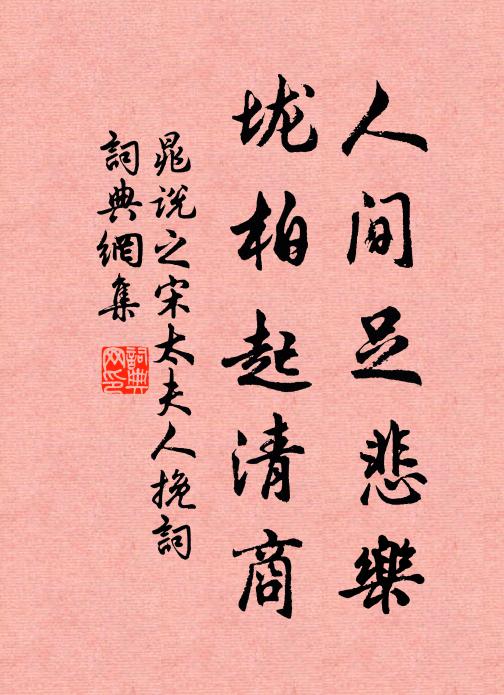 人间足悲樂
垅柏起清商
晁说之宋太夫人挽詞
詞典網集
詞典网印